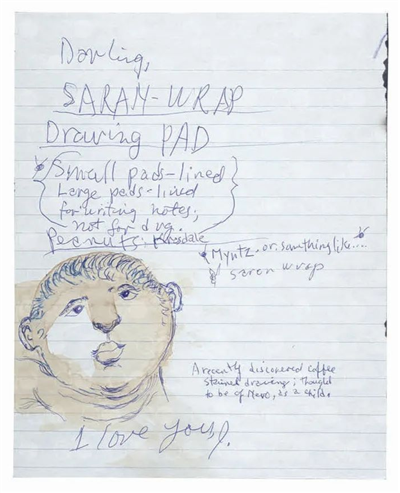 Darling,
SARAN-WRAP
Drawing PAD
Small pads-lined
Large pads-lined
for writing notes,
not for dwg.
Peanuts,
Myntz-or-something like....
saran wrap
A recently discovered coffee
stained drawing; thought
to be of Nero, as a child.
I love you,